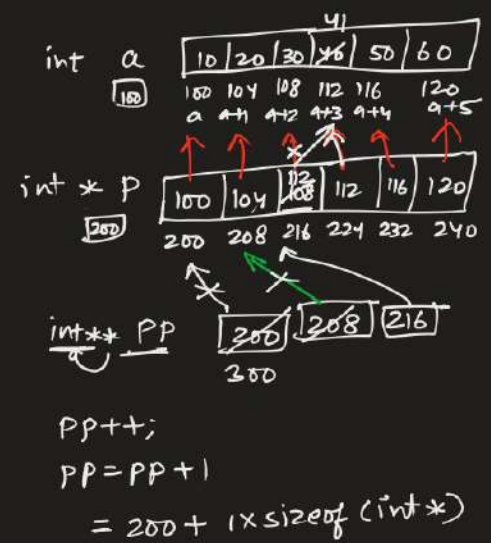 41
int a 10 20 30 40 50 60
100 100 104 108 112 116 120
a a+1 a+2 a+3 a+4 a+5
int * P 100 104 108 112 112 116 120
200 200 208 216 224 232 240
int** PP 200 208 216
300
PP++;
PP = PP + 1
= 200 + 1 x sizeof (int *)